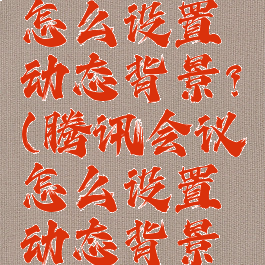 怎么设置
动态背景?
(腾讯会议
怎么设置
动态背景